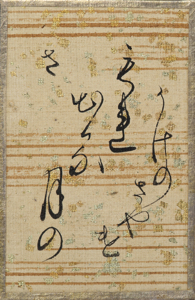 もれ
出つる
月の
かけの
さやけ
さ